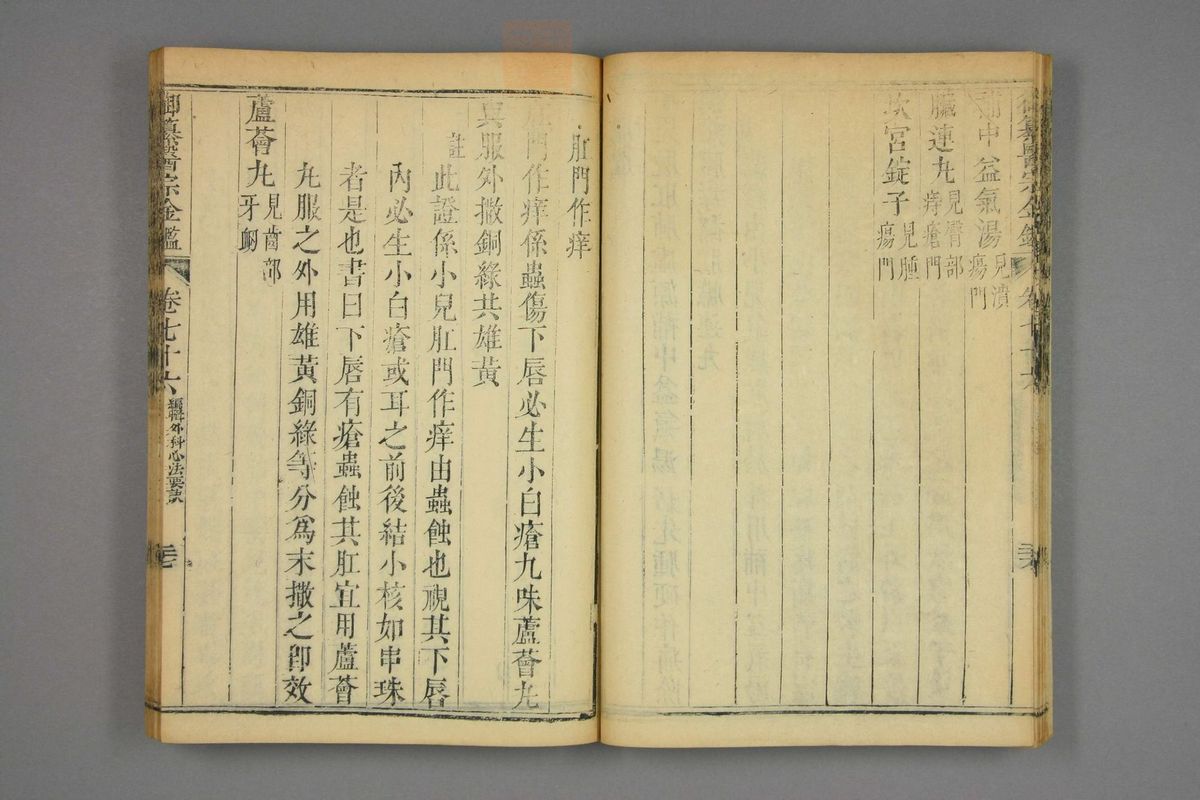 補中益氣湯 見潰
瘍門
臟連丸 見臀部
痔瘡門
坎宮錠子 見腫
瘍門
肛門作痒
肛門作痒係蟲傷下唇必生小白瘡九味蘆薈丸
異服外撒銅綠共雄黃
註 此證係小兒肛門作痒由蟲蝕也視其下唇
內必生小白瘡或耳之前後結小核如串珠
者是也書曰下唇有瘡蟲蝕其肛宜用蘆薈
丸服之外用雄黃銅綠等分爲末撒之卽效
蘆薈丸 見齒部
牙衄
御纂醫宗金鑑 卷七十六 編輯外科心法要訣